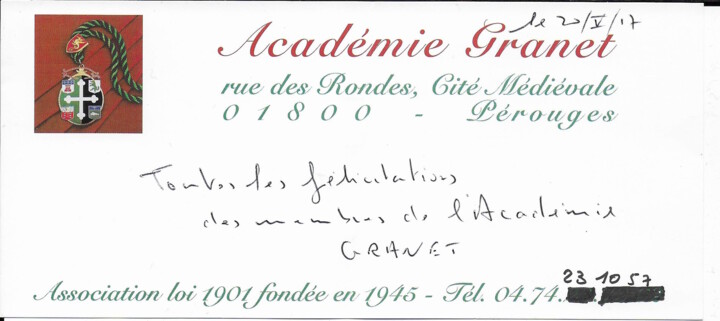 le 20/V/17
Académie Granet
rue des Rondes, Cité Médiévale
01800 - Pérouges
Toutes les félicitations
des membres de l'Académie
GRANET
23 10 57
Association loi 1901 fondée en 1945 - Tél. 04.74.